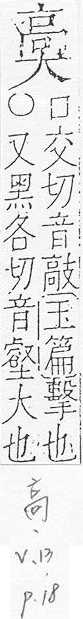 口交切音敲玉篇擊也
○又黑各切音壑大也
高、
V.13
p.18